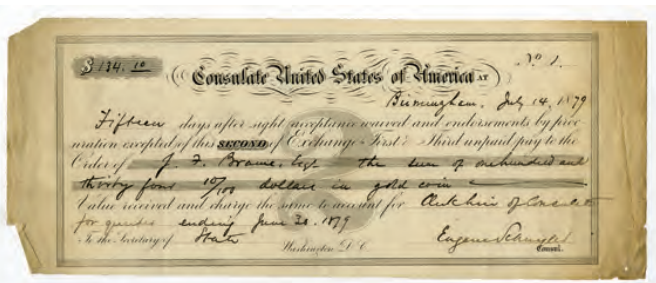 $ 134. 10
No. 1.
Consulate United States of America AT
Birmingham, July 14, 1879
Fifteen days after sight acceptance waived and endorsements by proc-
uration excepted of this SECOND of Exchange First & Third unpaid pay to the
Order of J. F. Esq. the sum of one hundred and
thirty four 10/100 dollars in gold coin
Value received and charge the same to account for of Consulate
for quarter ending June 30. 1879
To the Secretary of State
Washington D.C.
Eugene Schuyler
Consul.